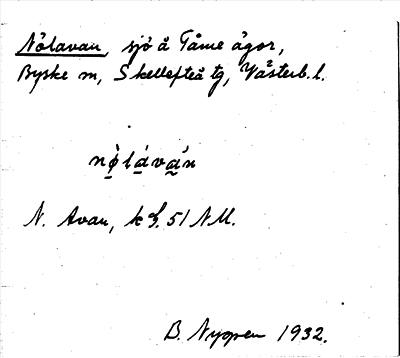 Nölavan, sjö å Tåme ägor,
Byske sn, Skellefteå tg, Västerb. l.
nö̀lává̀n
N. Avan, k bl. 51 N.V.
B. Nyman 1932.